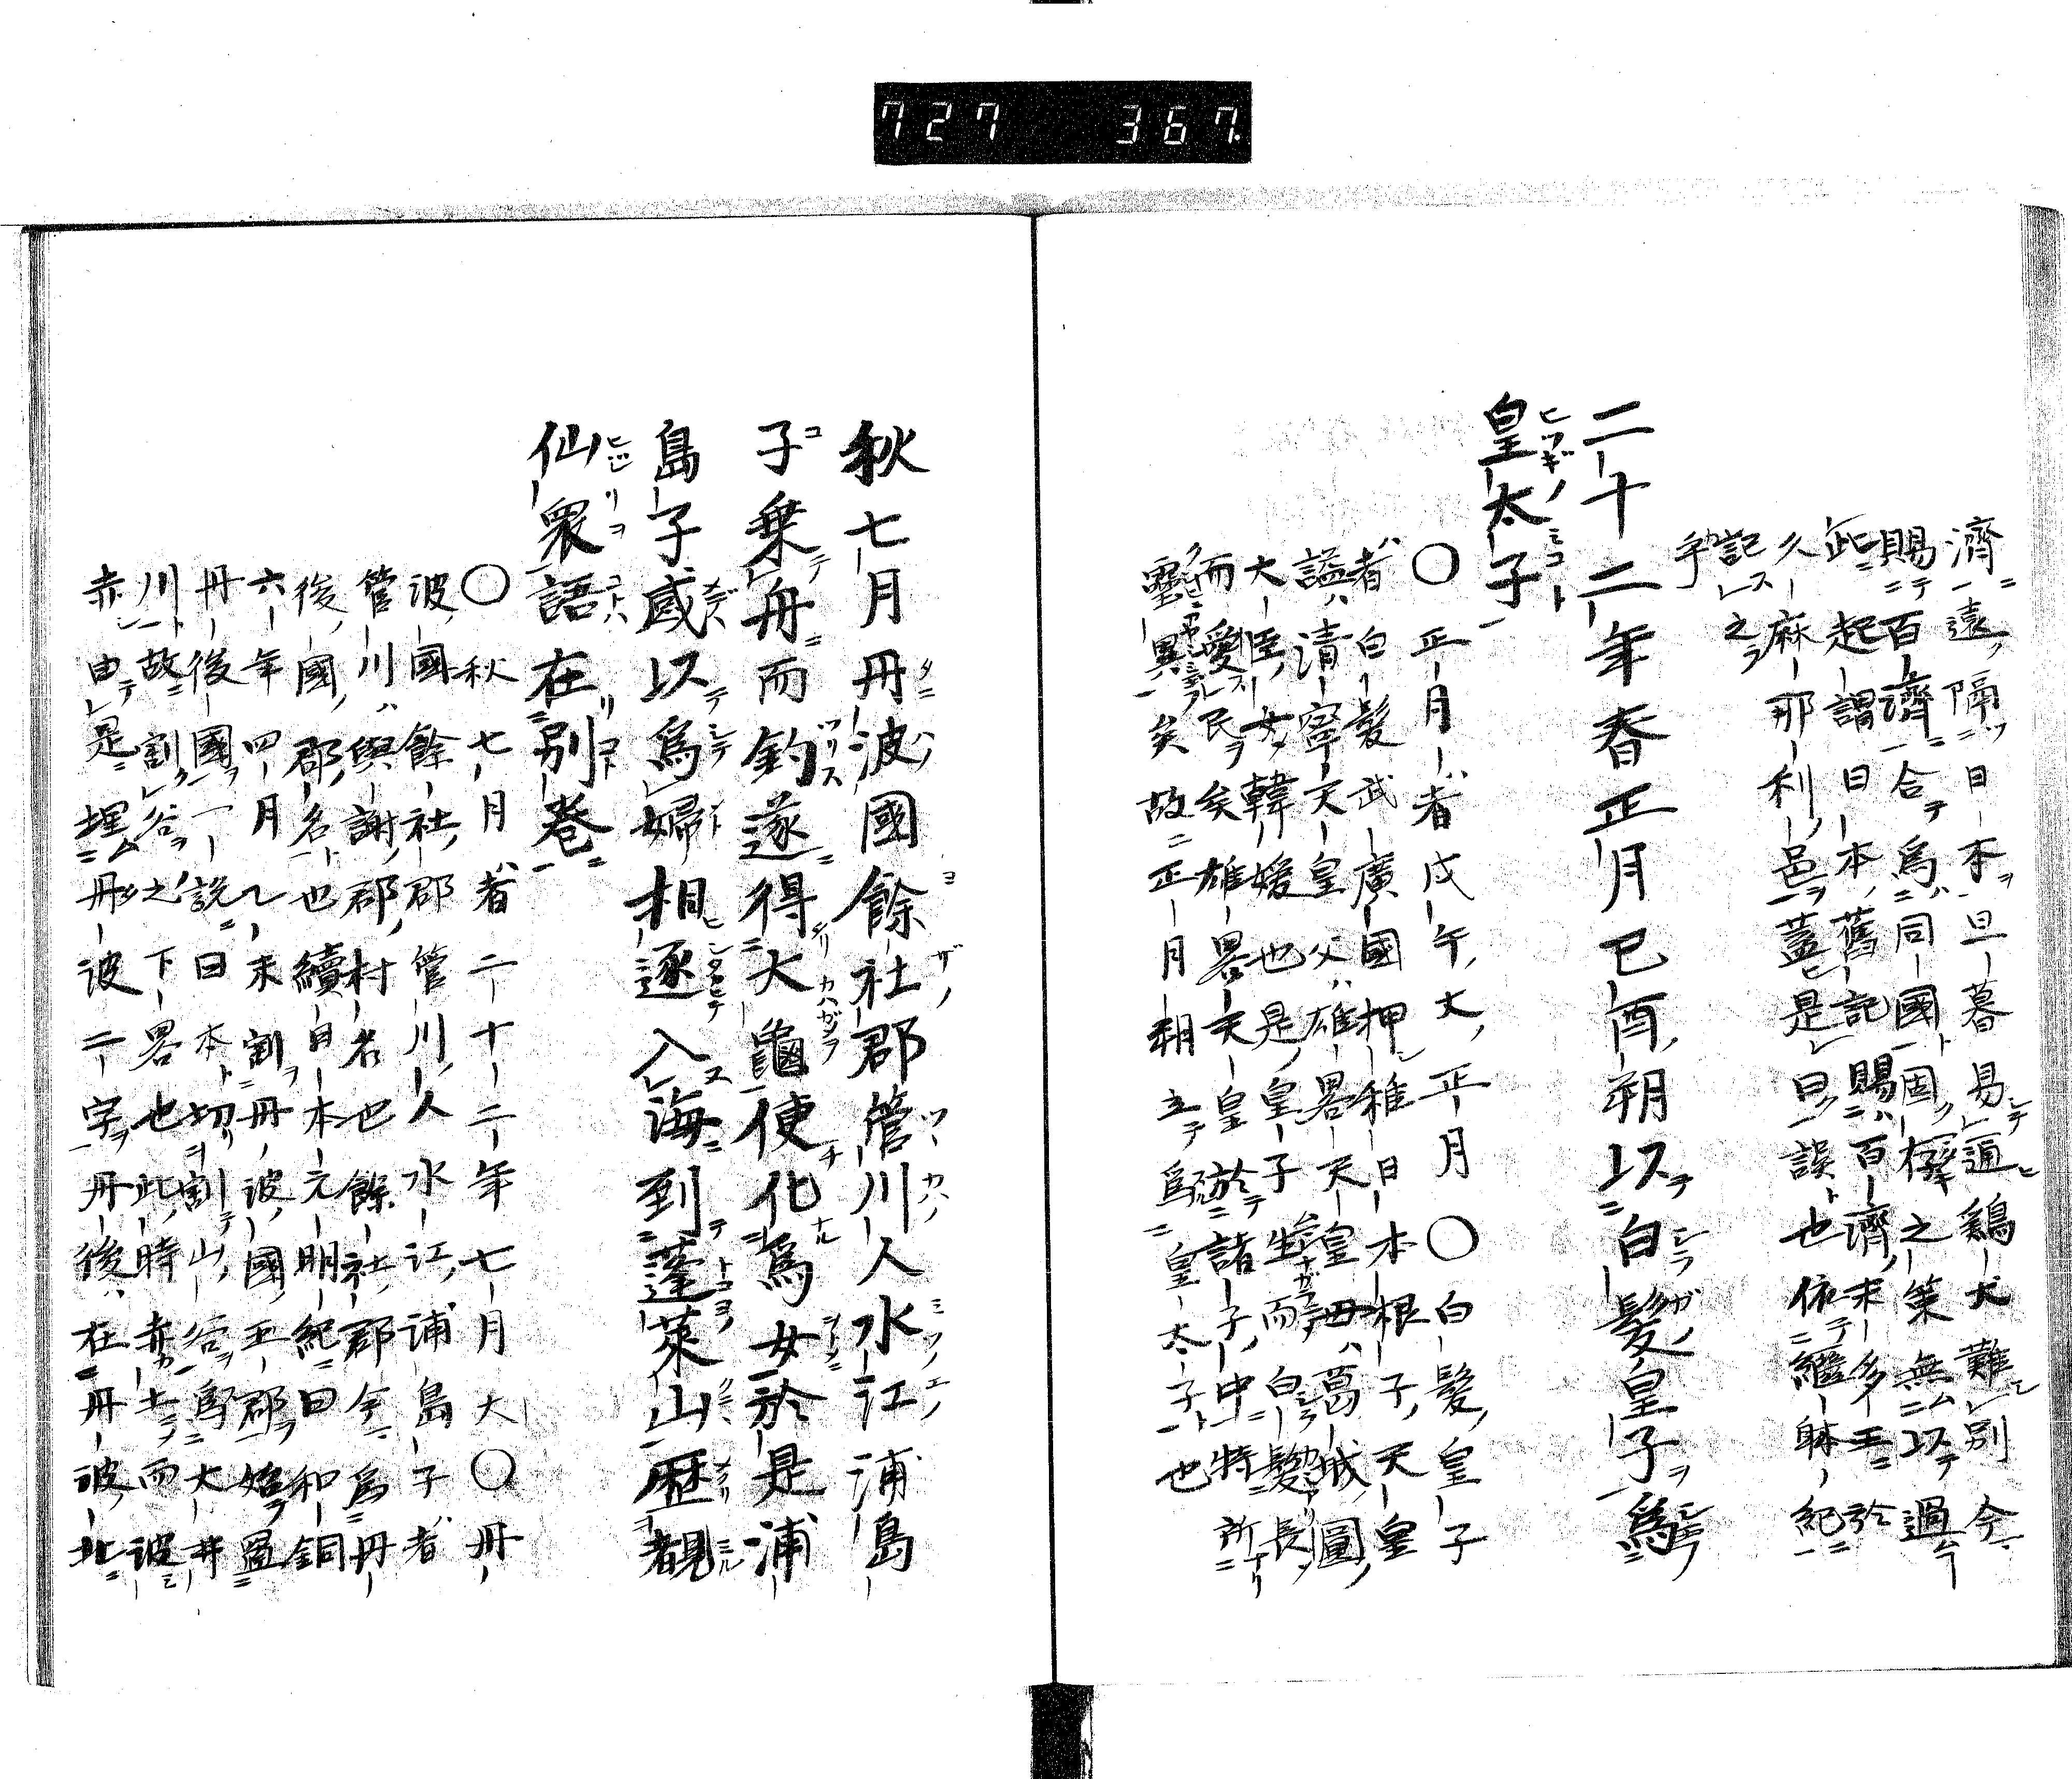 727 367.
濟遠隔日本旦暮易通鷄犬難別今
賜百濟合爲同國固存之策無以過
此起謂日本舊記賜百濟末多王於
久麻那利邑蓋是曰誤也依繼躰紀
記之
乎
二十二年春正月己酉朔以白髮皇子爲
皇太子
〇正月者戊午大正月〇白髮皇子
者白髮武廣國押稚日本根子天皇
謚清寧天皇父雄畧天皇母葛城圓
大臣女韓媛也是皇子生而白髮長
而愛民矣雄畧天皇於諸子中特所
靈異矣故正月朔立爲皇太子也
秋七月丹波國餘社郡管川人水江浦島
子乗舟而釣遂得大龜便化爲女於是浦
島子感以爲婦相逐入海到蓬萊山歷覩
仙衆語在別巻
〇秋七月者二十二年七月大〇丹
波國餘社郡管川人水江浦島子者
管川與謝郡村名也餘社郡今爲丹
後國郡名也續日本元明紀曰和銅
六年四月乙未割丹波國五郡始置
丹後國一說曰本切割山谷爲大井
川故割谷之下畧也此時赤土而波
赤由是埋丹波二字丹後在丹波北